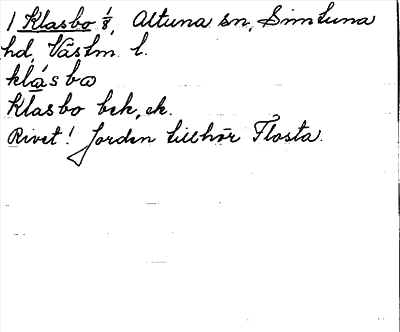 1 Klasbo 1/8, Altuna sn, Simtuna
hd, Västm. l.
klåsbo
Klasbo bek, ek.
Rivet! Jorden tillhör Flosta.